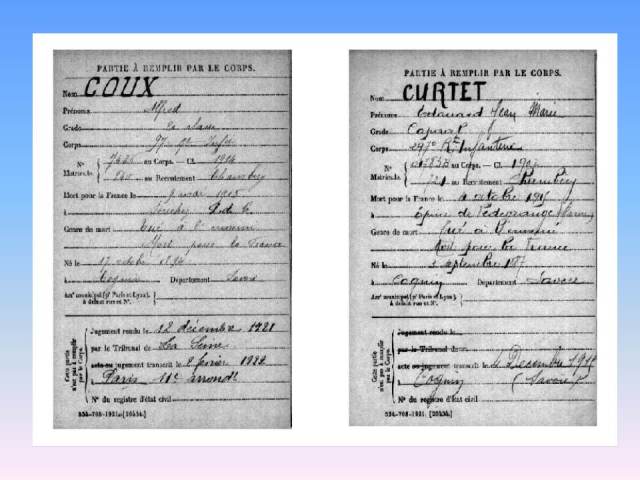 PARTIE À REMPLIR PAR LE CORPS.
Nom COUX
Prénoms Alfred
Grade 2e classe
Corps 97e
N° Matricule. au Corps. — Cl. 1914
au Recrutement Chambéry
Mort pour la France le 9 mai 1915
à
Genre de mort Tué à l'ennemi
Mort pour la France
Né le 17 octobre
à Cognin Département Savoie
Arrt municipal (pr Paris et Lyon),
à défaut rue et N°.
Cette partie n'est pas à remplir par le Corps.
Jugement rendu le 22 décembre 1921
par le Tribunal de La Seine
acte ou jugement transcrit le 8 février 1922
à Paris
N° du registre d'état civil
534-708-1921. [26434.]
PARTIE À REMPLIR PAR LE CORPS.
Nom CURTET
Prénoms Edouard Jean Marie
Grade Caporal
Corps 297e Rt Infanterie
N° Matricule. au Corps. — Cl.
au Recrutement Chambéry
Mort pour la France le octobre
à
Genre de mort Tué à l'ennemi
Mort pour la France
Né le septembre
à Cognin Département Savoie
Arrt municipal (pr Paris et Lyon),
à défaut rue et N°.
Cette partie n'est pas à remplir par le Corps.
Jugement rendu le
par le Tribunal de
acte ou jugement transcrit le Décembre
à Cognin (Savoie)
N° du registre d'état civil
534-708-1921. [26434.]